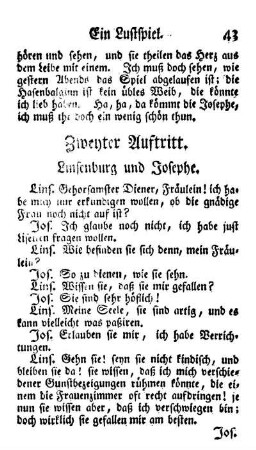 Ein Lustspiel. 43
hören und sehen, und sie theilen das Herz aus
dem Leibe mit einem. Ich muß doch sehen, wie
gestern Abends das Spiel abgelaufen ist; die
Hasenbalginn ist kein übles Weib, die könnte
ich lieb haben. Ha, ha, da kömmt die Josephe,
ich muß ihr doch ein wenig schön thun.
Zweyter Auftritt.
Linsenburg und Josephe.
Lins. Gehorsamster Diener, Fräulein! ich ha-
be mich nur erkundigen wollen, ob die gnädige
Frau noch nicht auf ist?
Jos. Ich glaube noch nicht, ich habe just
Lisetten fragen wollen.
Lins. Wie befinden sie sich denn, mein Fräu-
lein?
Jos. So zu dienen, wie sie sehn.
Lins. Wissen sie, daß sie mir gefallen?
Jos. Sie sind sehr höflich!
Lins. Meine Seele, sie sind artig, und es
kann vielleicht was paßiren.
Jos. Erlauben sie mir, ich habe Verrich-
tungen.
Lins. Gehn sie! seyn sie nicht kindisch, und
bleiben sie da! sie wissen, daß ich mich verschie-
dener Gunstbezeigungen rühmen könnte, die ei-
nem die Frauenzimmer oft recht aufdringen! je
nun sie wissen aber, daß ich verschwiegen bin;
doch wirklich sie gefallen mir am besten.
Jos.